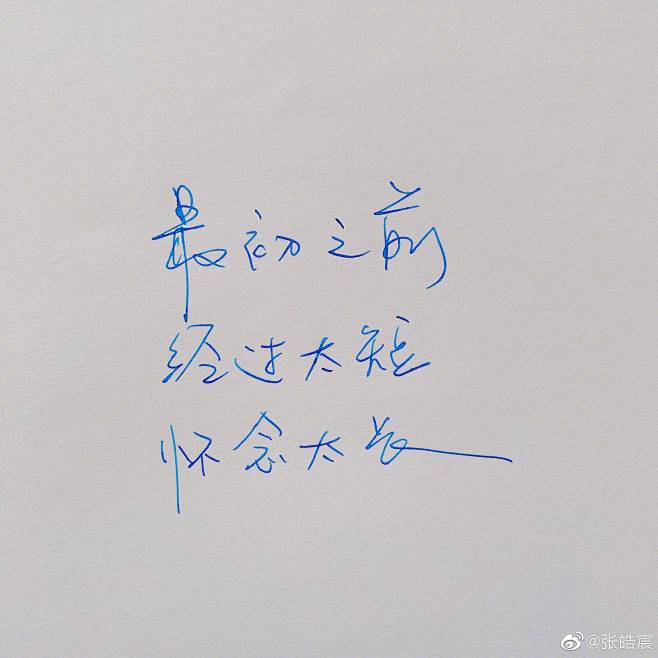 最初之前
经过太短
怀念太长
@张皓宸